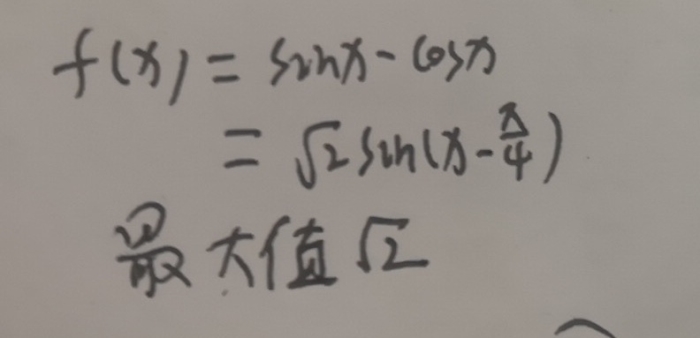 f(x) = sinx - cosx
= √2 sin(x - π/4)
最大值√2